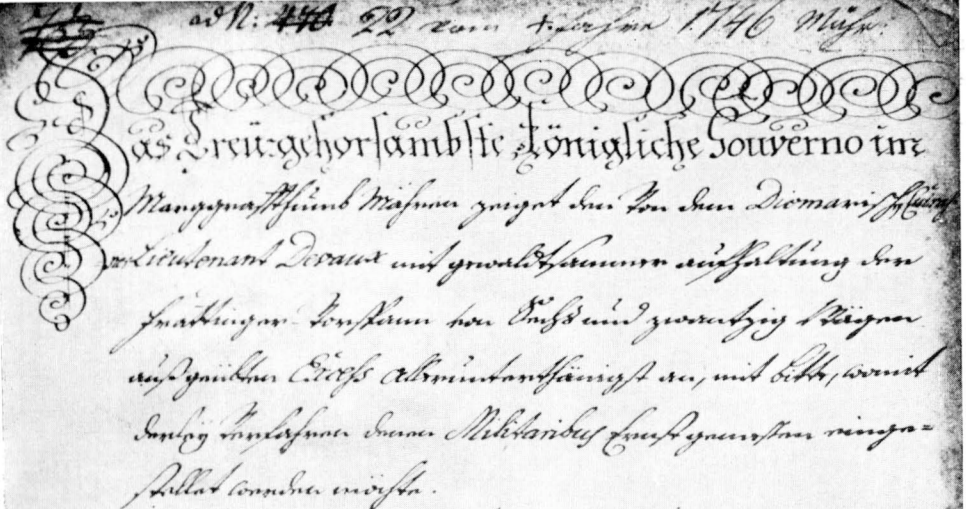 ad N: 22 vom Jahre 1746 Mähr:
Das Treü-gehorsambste Königliche Gouverno im
Marggraffthumb Mähren zeiget den von dem Diemarisch
Lieutenant Devaux mit gewaldtsammer aufhaltung der
Frattinger Vorspann von Sechs und zwantzig Wägen
außgeübten Excess allerunterthänigst an, mit bitte, womit
derley Verfahren denen Militaribus Ernst gemessen einge=
stellet werden möchte.